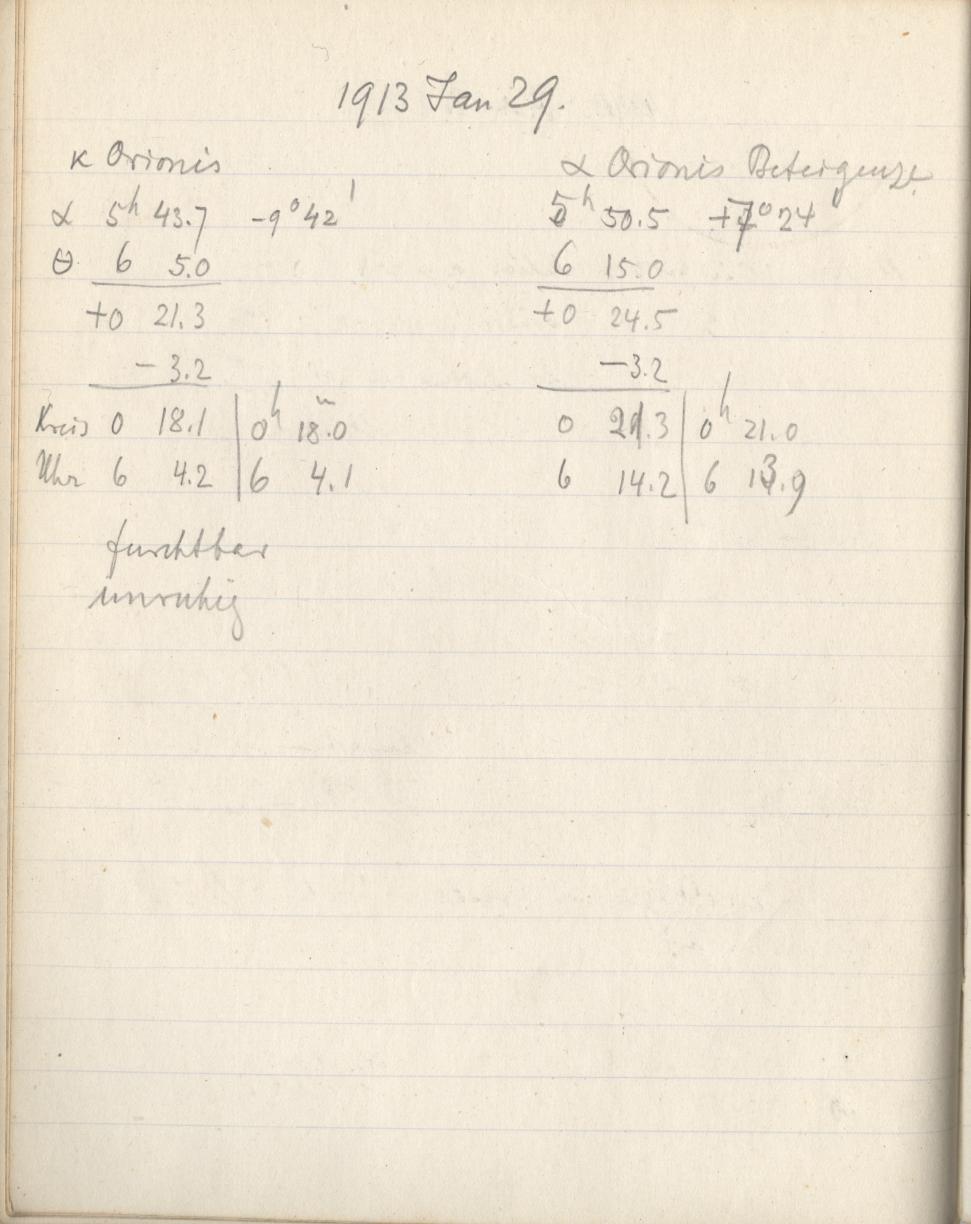 1913 Jan 29.
κ Orionis
α 5h 43.7 -9° 42'
Θ 6 5.0
+0 21.3
- 3.2
Kreis 0 18.1 | 0h 18.0m
Uhr 6 4.2 | 6 4.1
furchtbar
unruhig
α Orionis Beteigeuze
5h 50.5 +7° 24
6 15.0
+0 24.5
-3.2
0 21.3 | 0h 21.0
6 14.2 | 6 13.9